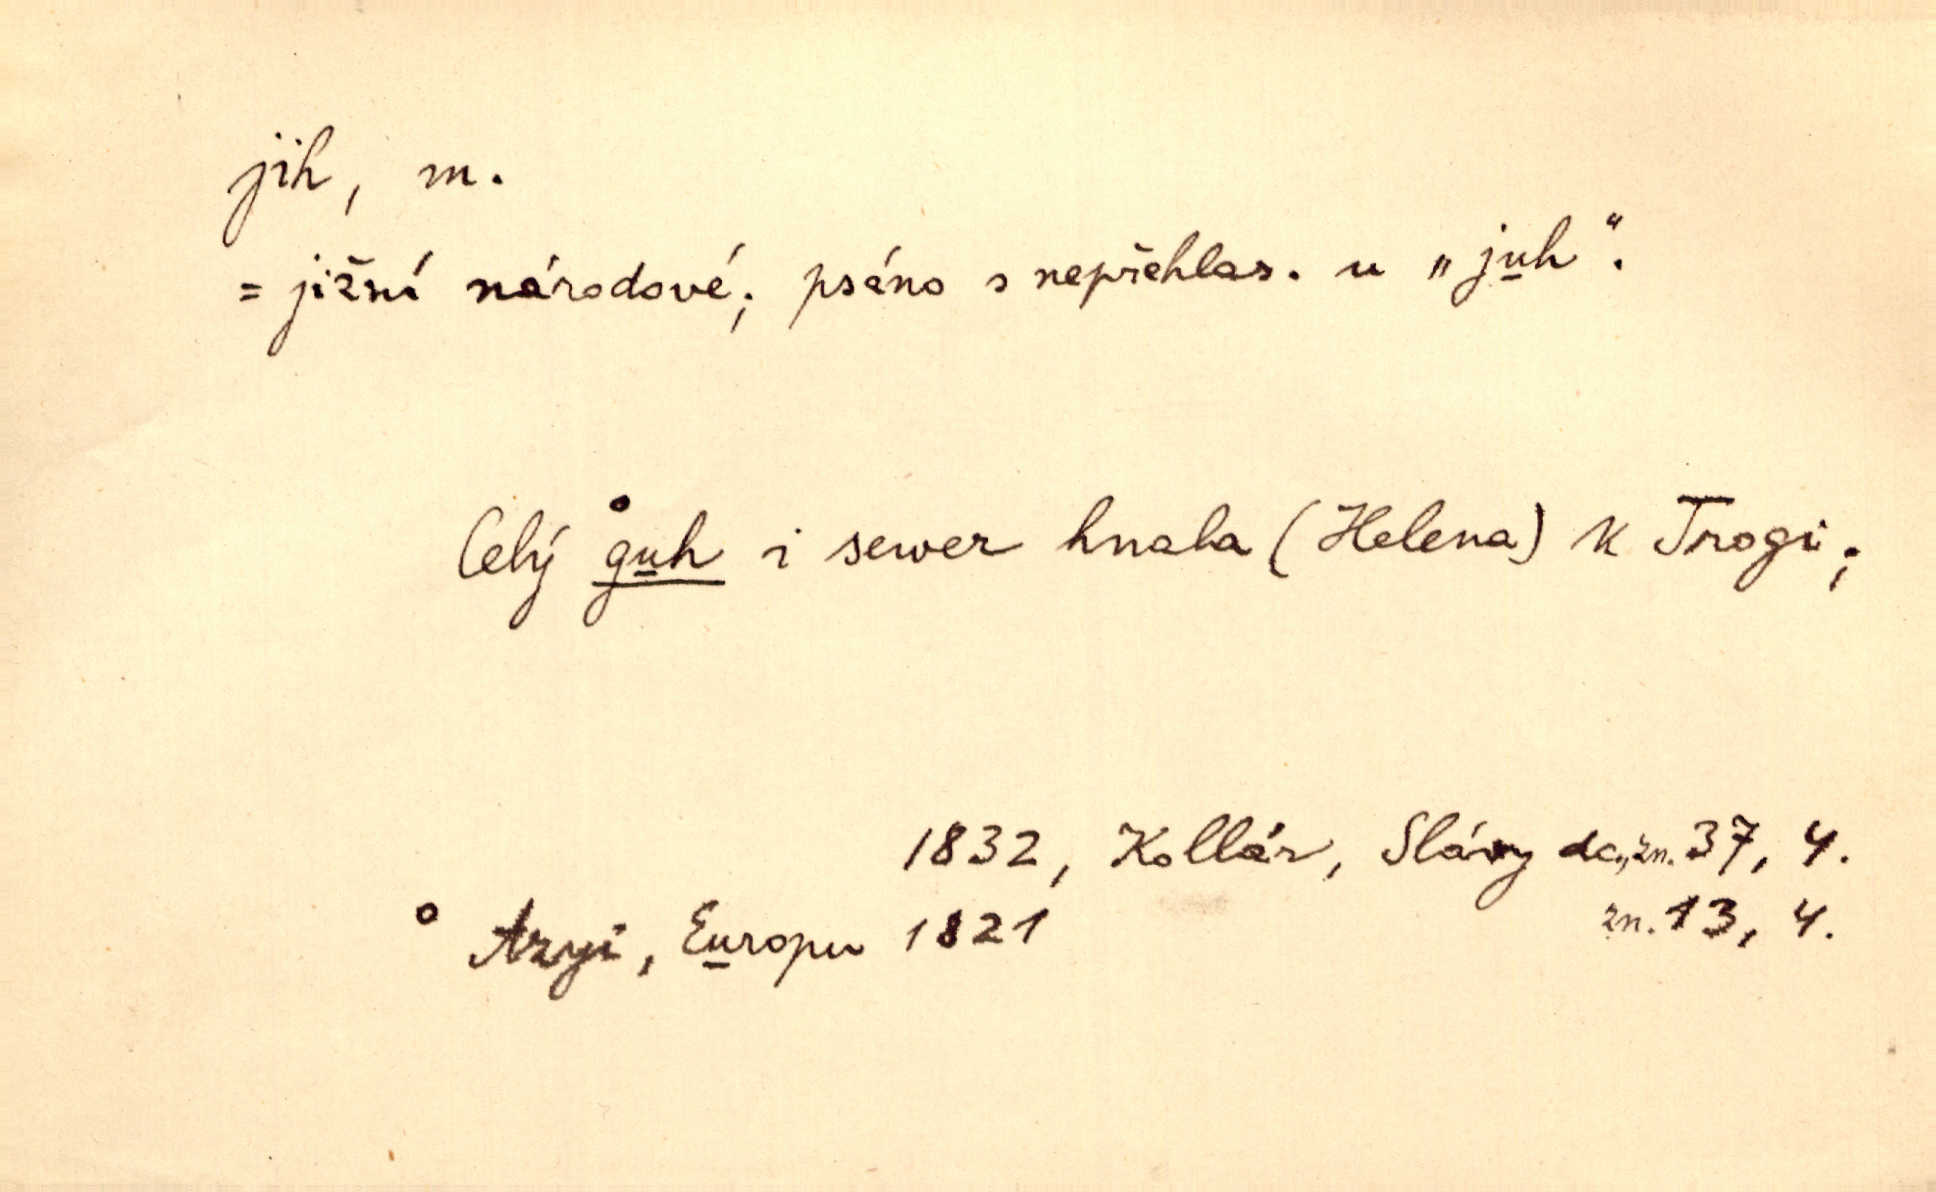 jih, m.
= jižní národové; psáno s nepřehlas. u „juh“.
Celý °guh i sewer hnala (Helena) k Trogi;
1832, Kollár, Slávy dc., zn. 37, 4.
° Azyi, Europu 1821 zn. 13, 4.